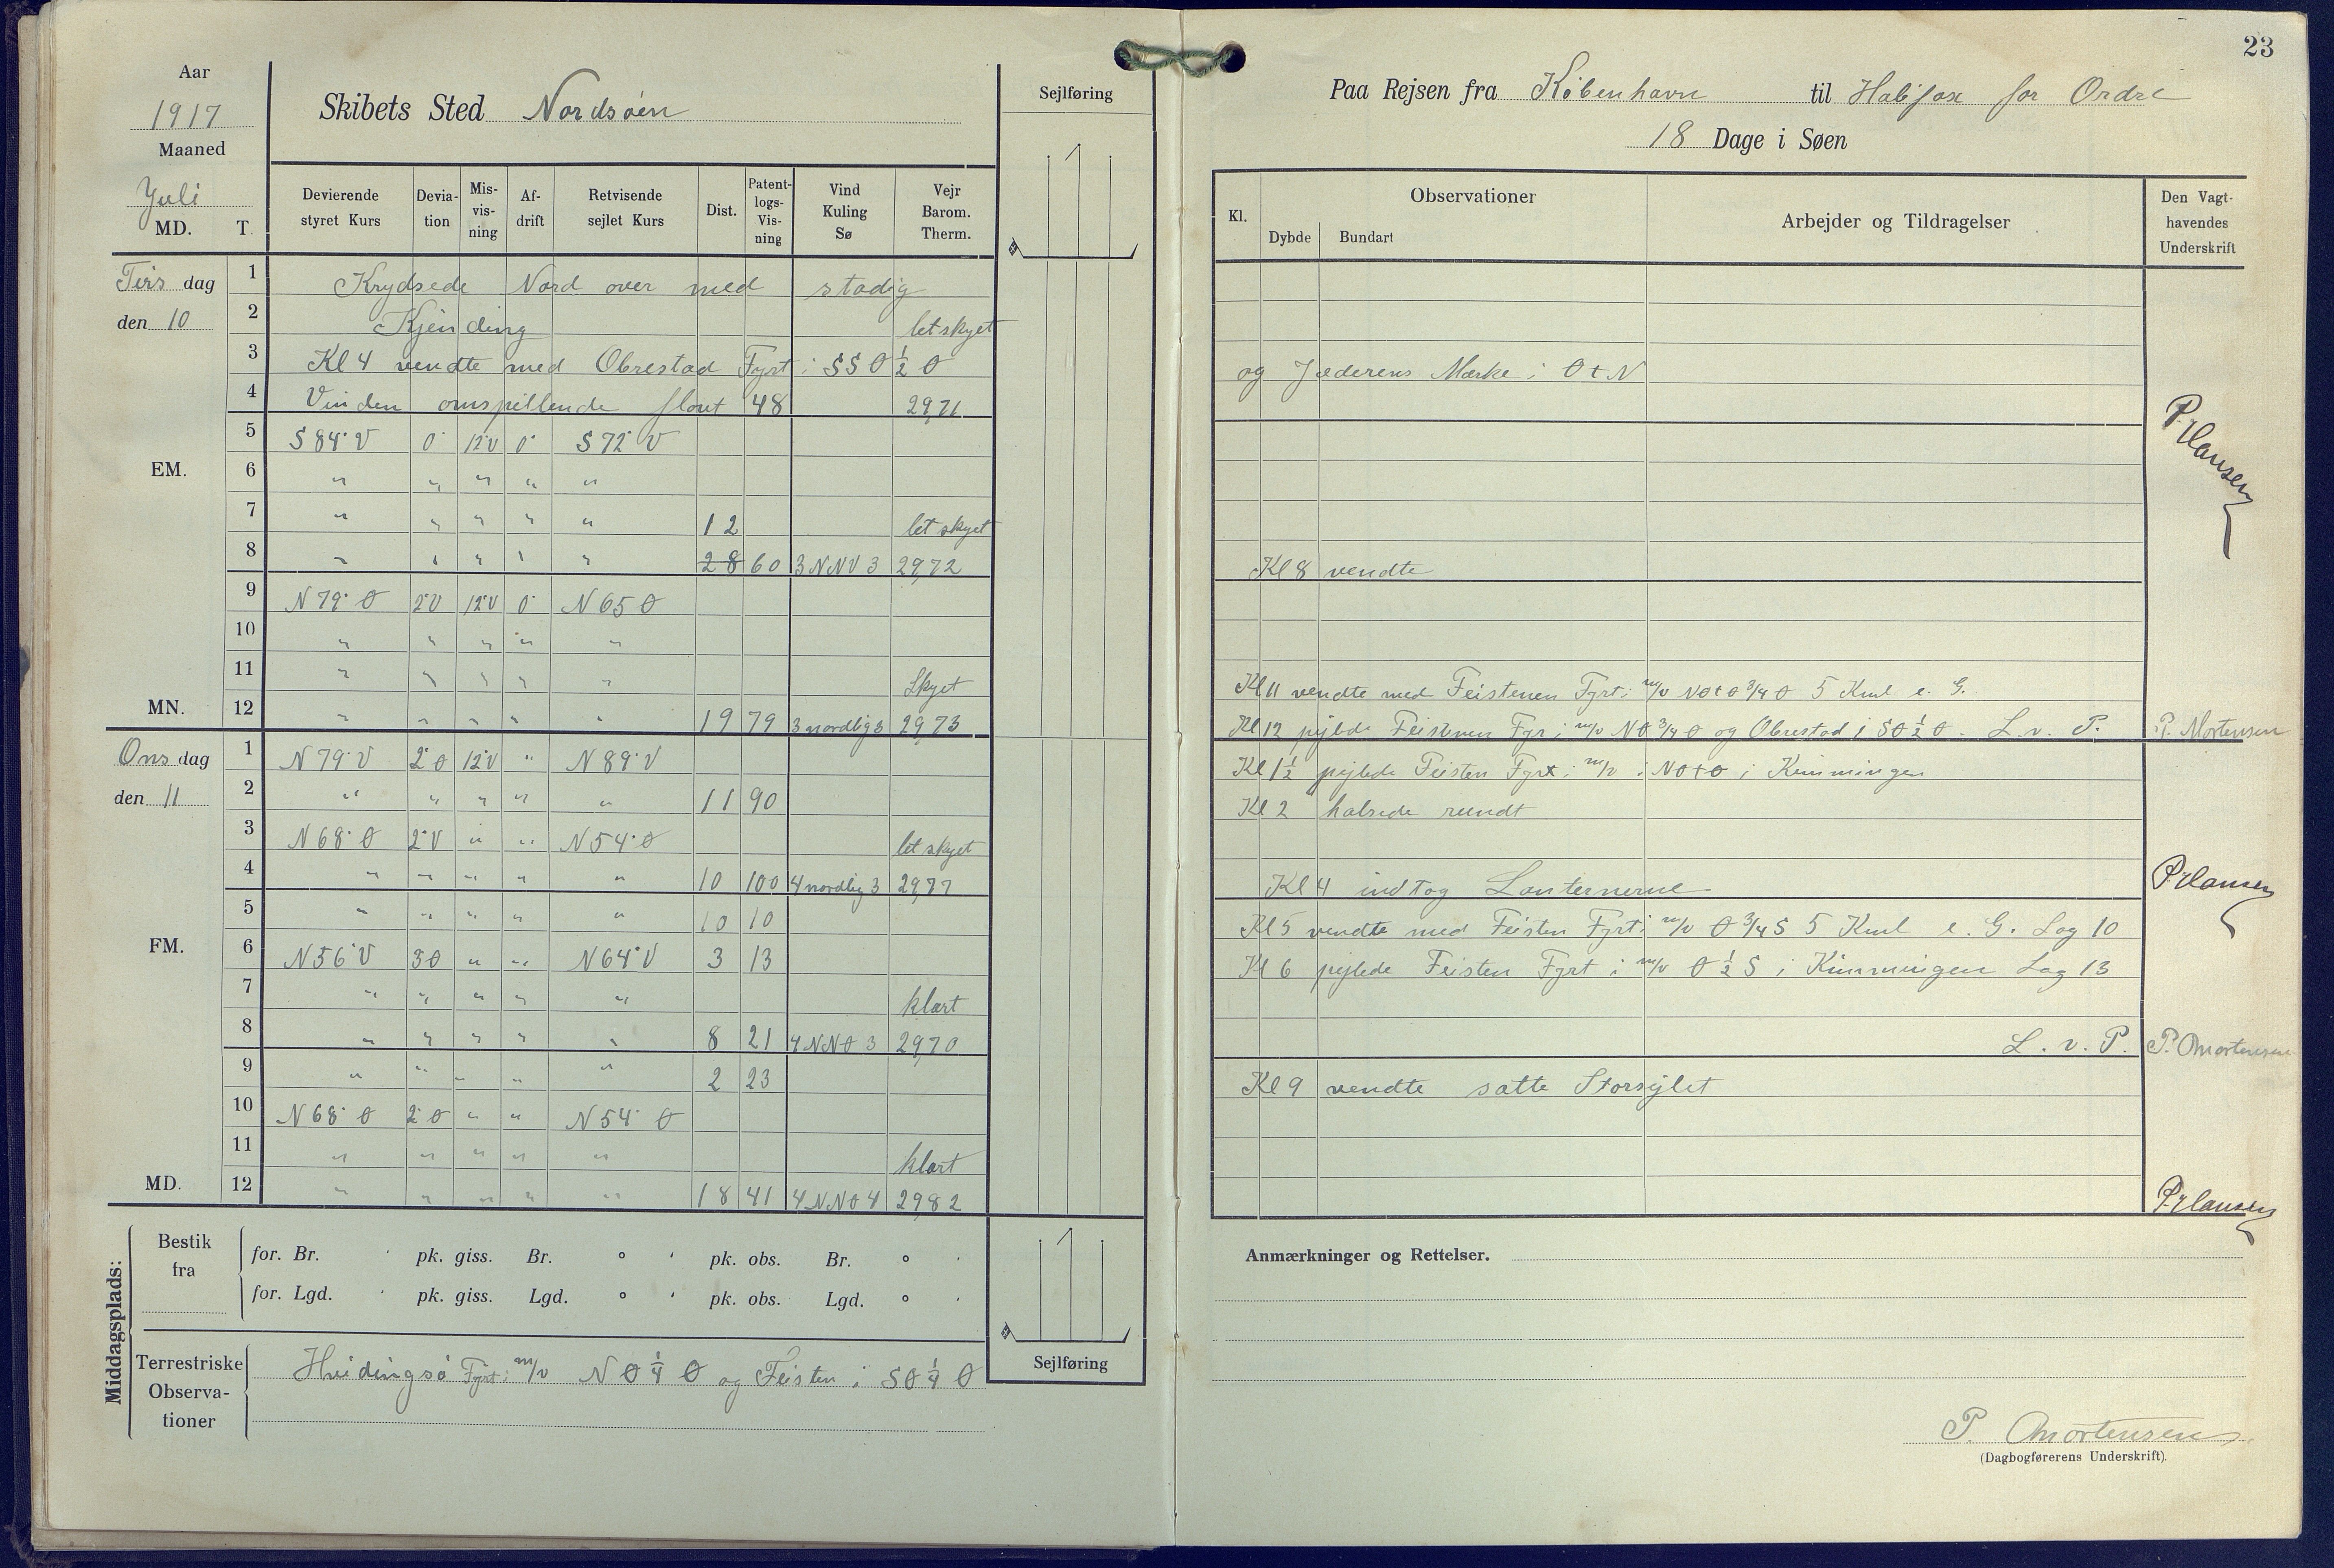 Aar
1917
Maaned
Juli
MD. T.
Skibets Sted Nordsöen
Sejlføring
Devierende styret Kurs | Devia-tion | Mis-vis-ning | Af-drift | Retvisende sejlet Kurs | Dist. | Patent-logs-Vis-ning | Vind Kuling Sø | Vejr Barom. Therm.
Tirs dag 1 Krydsede Nord over med stadig
den 10 2 Kjending letskyet
3 Kl 4 vendte med Obrestad Fyrt i SSO ½ O
4 Vinden omspillende flout 48 29,71
5 S 84° V 0° 12°V 0° S 72° V
EM. 6 " " " " "
7 " " " " " 12 let skyet
8 " " " " " 28 60 3 NNV 3 29,72
9 N 79° O 2°V 12°V 0° N 65 O
10 " " " " "
11 " " " " " Skyet
MN. 12 " " " " " 19 79 3 nordlig 3 29,73
Ons dag 1 N 79° V 2°O 12°V " N 89° V
den 11 2 " " " " " 11 90
3 N 68° O 2°V " " N 54° O let skyet
4 " " " " " 10 100 4 nordlig 3 29,77
5 " " " " " 10 10
FM. 6 N 56° V 3O " " N 64° V 3 13
7 " " " " " klart
8 " " " " " 8 21 4 NNO 3 29,70
9 " " " " " 2 23
10 N 68° O 2°O " " N 54° O
11 " " " " " klart
MD. 12 " " " " " 18 41 4 NNO 4 29,82
Middagsplads:
Bestik fra
for. Br. ' pk. giss. Br. ° ' pk. obs. Br. ° '
for. Lgd. ' pk. giss. Lgd. ° ' pk. obs. Lgd. ° '
Terrestriske Observa-tioner
Hvidingsö Fyrt i m/v NO ¼ O og Feisten i SO ¼ O
Sejlføring
23
Paa Rejsen fra København til Halifax for Ordre
18 Dage i Søen
Kl. | Observationer | Dybde | Bundart | Arbejder og Tildragelser | Den Vagt-havendes Underskrift
og Jæderens Mærke i O t N
P. Hansen
Kl 8 vendte
Kl 11 vendte med Feistenen Fyrt i m/v NOtO ¾ O 5 Kml e. G.
Kl 12 pejlde Feistenen Fyr i m/v NO ¾ O og Obrestad i SO ½ O. L. v. P. P. Mortensen
Kl 1½ pejlede Feisten Fyrt i m/v i NOtO i Kimmingen
Kl 2 halsede rundt
Kl 4 indtog Lanternerne P Hansen
Kl 5 vendte med Feisten Fyrt i m/v O ¾ S 5 Kml e. G. Log 10
Kl 6 pejlede Feisten Fyrt i m/v O ½ S i Kimmingen Log 13
L. v. P. P. Mortensen
Kl 9 vendte satte Storsejlet
P. Hansen
Anmærkninger og Rettelser.
P. Mortensen
(Dagbogførerens Underskrift).